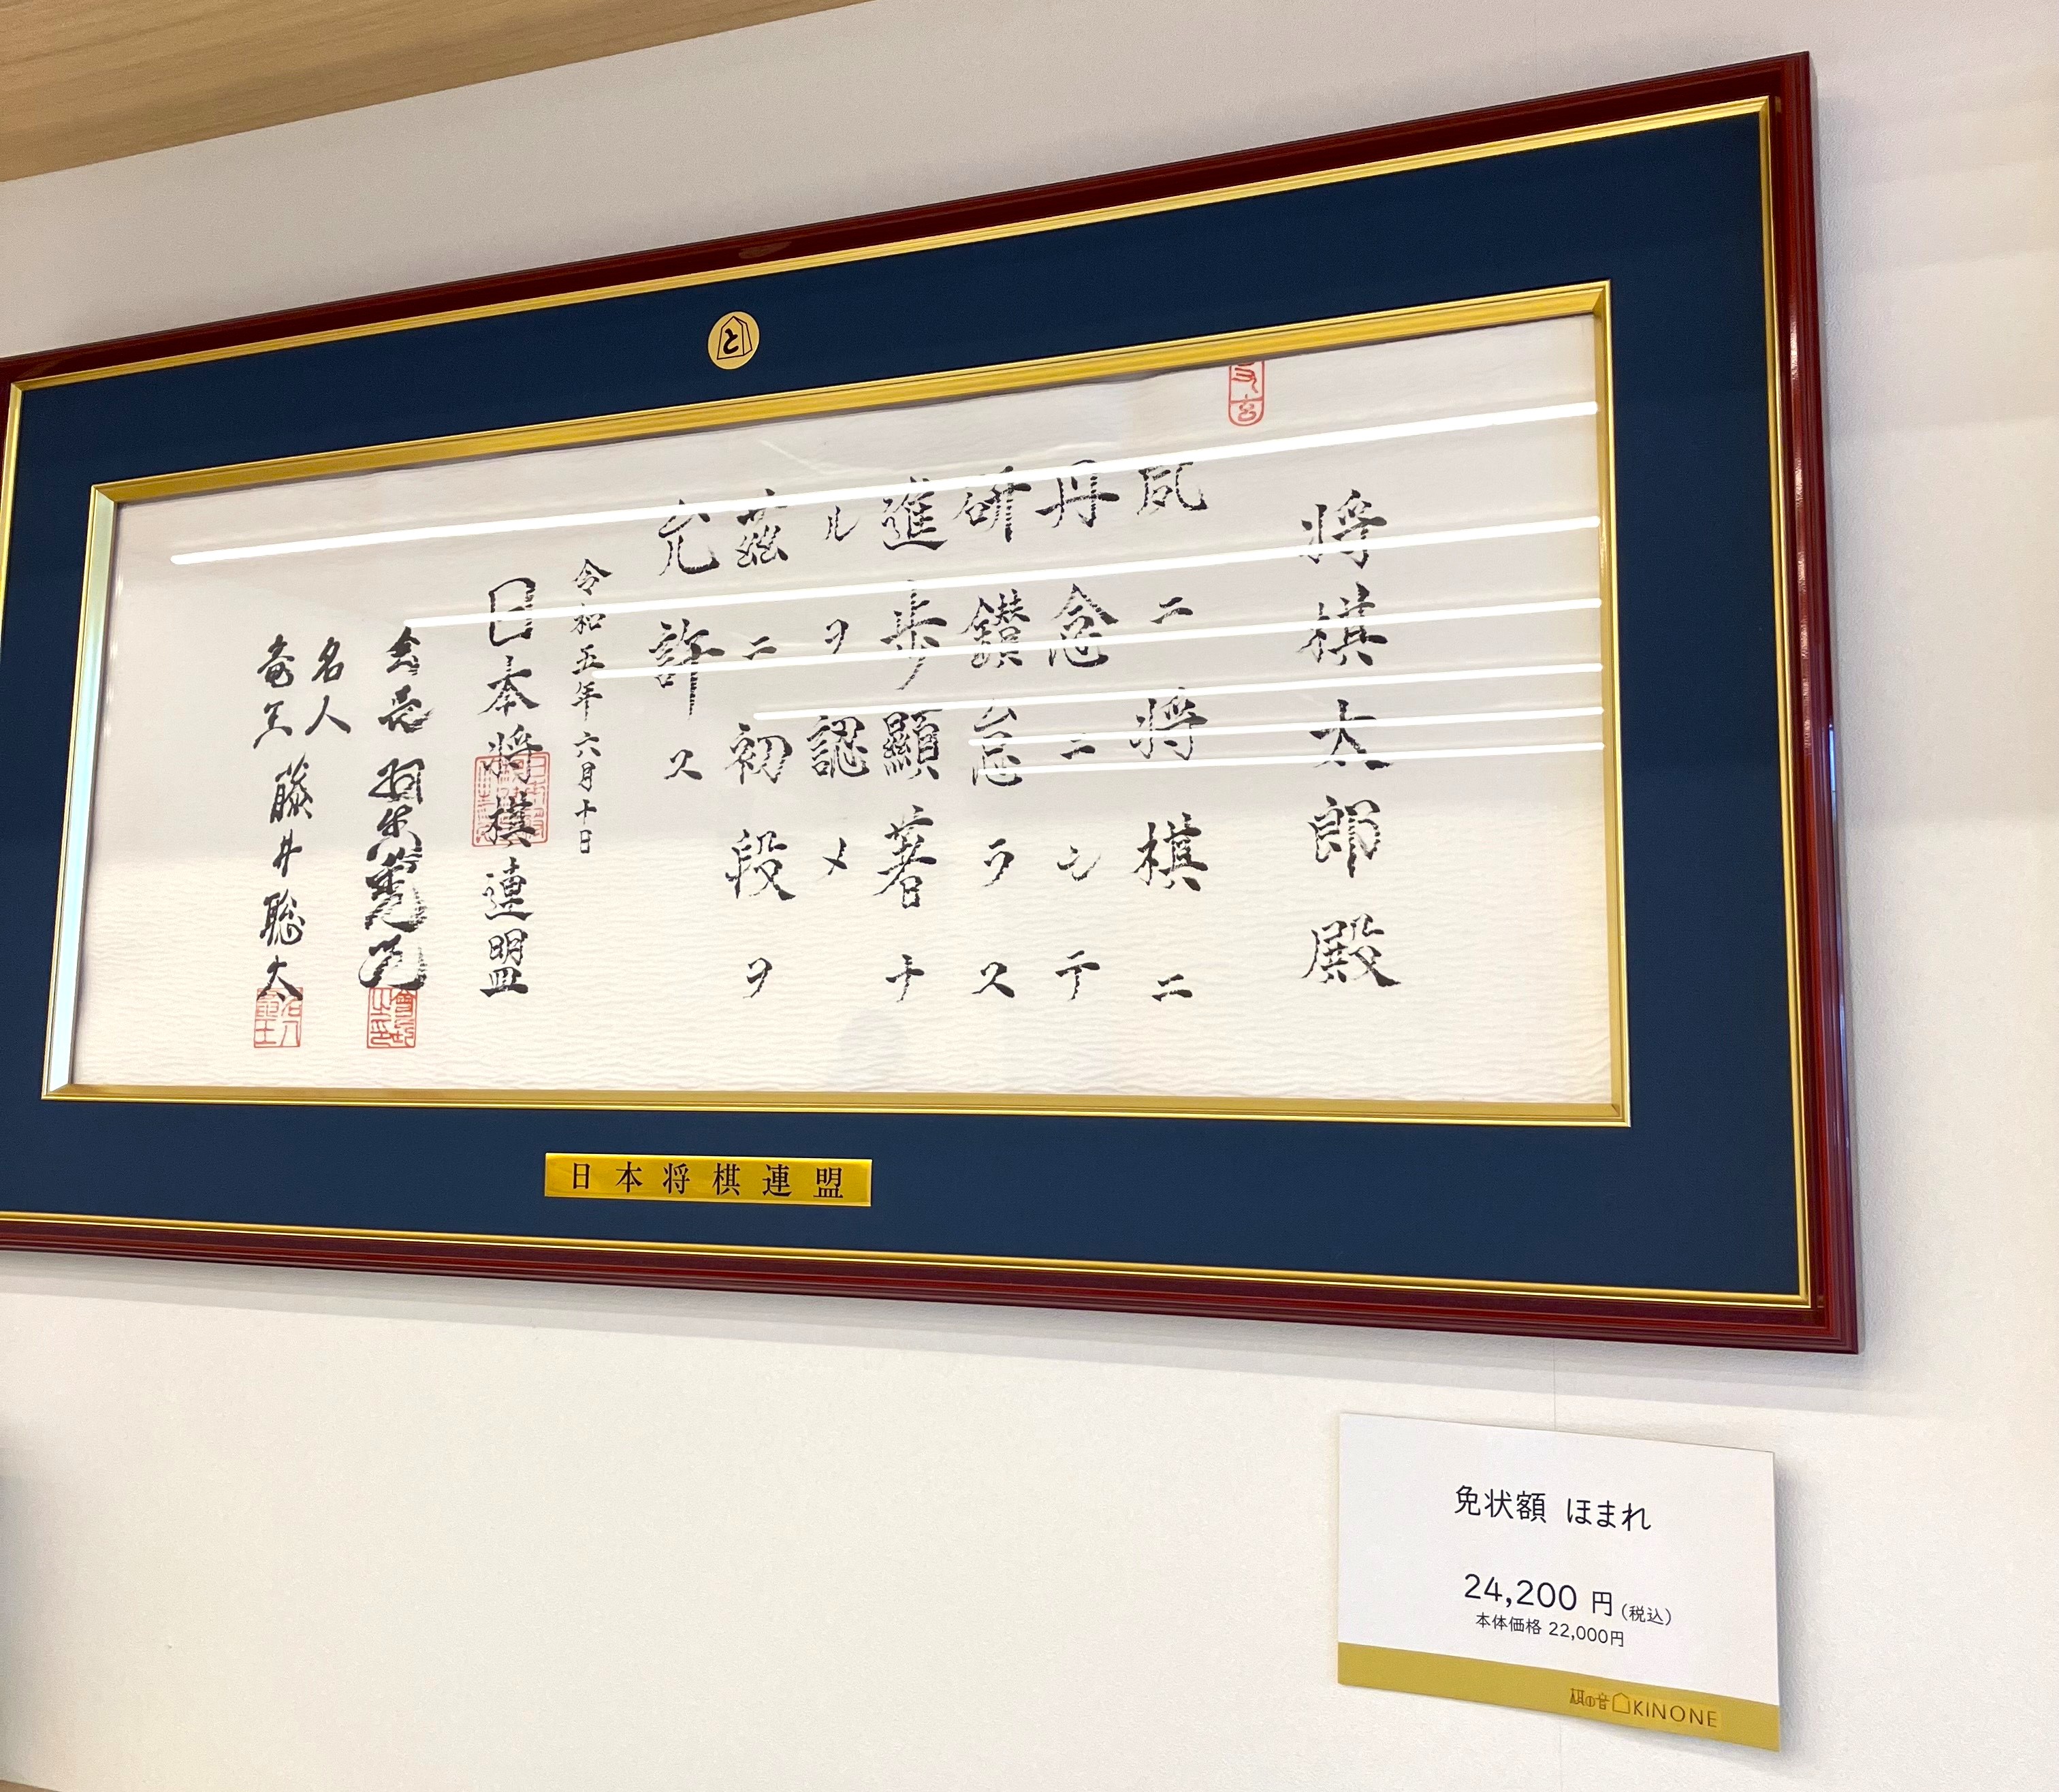 と
将棋太郎殿
夙ニ将棋ニ
丹念ニシテ
研鑽怠ラス
進歩顕著ナ
ルヲ認メ
茲ニ初段ヲ
允許ス
令和五年六月十日
日本将棋連盟
会長 羽生善治
名人
竜王 藤井聡太
日本将棋連盟
免状額 ほまれ
24,200 円(税込)
本体価格 22,000円
棋の音 KINONE